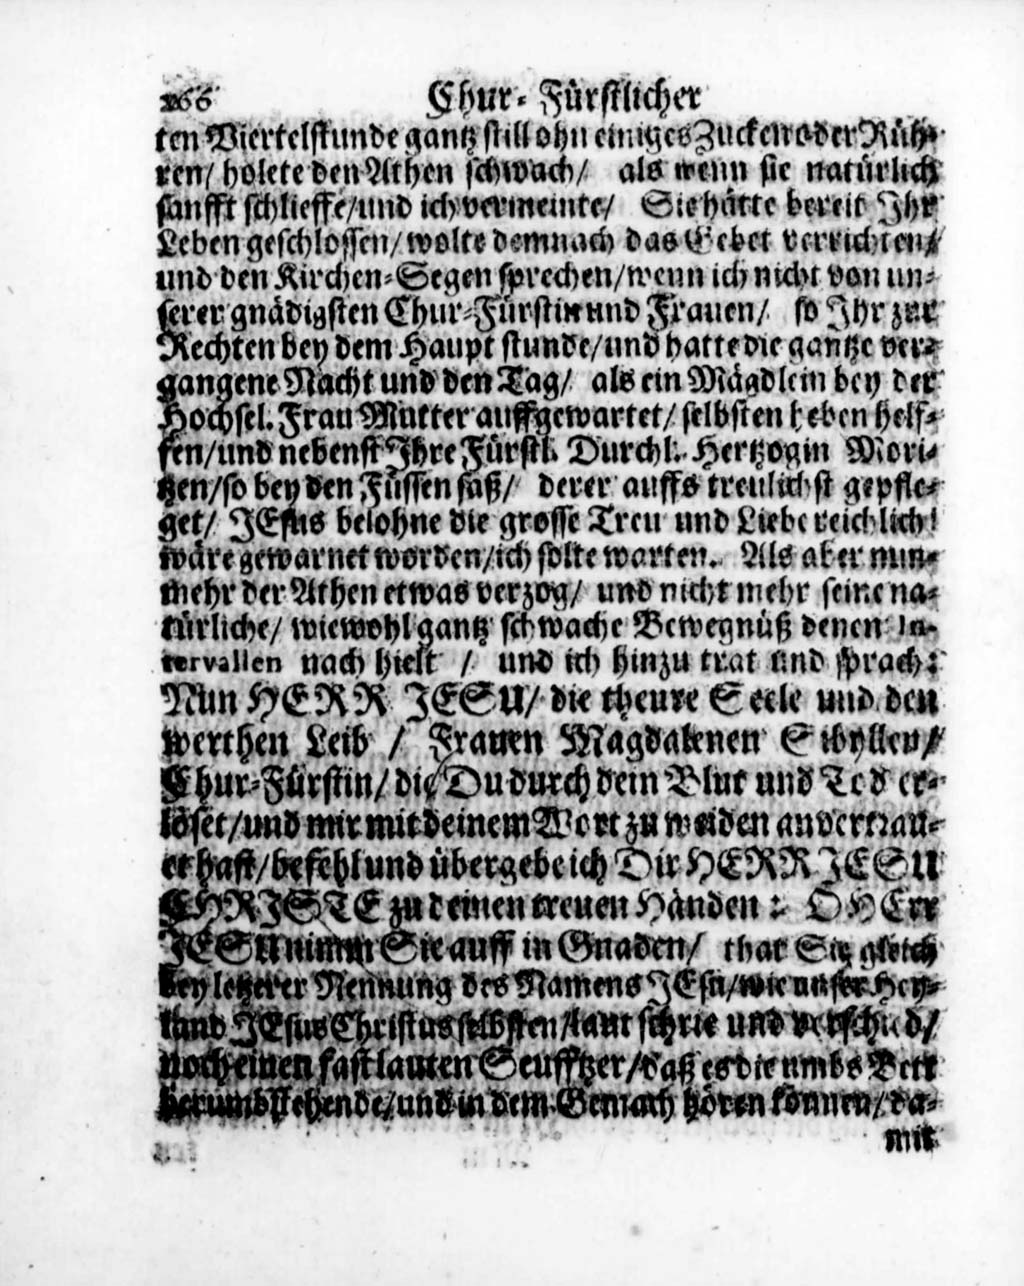 266 Chur-Fürstlicher
ten Viertelstunde gantz still ohn einiges Zucken oder Rüh-
ren/ holete den Athen schwach/ als wenn sie natürlich
sanfft schlieffe/und ich vermeinte/ Sie hätte bereit Ihr
Leben geschlossen/ wolte demnach das Gebet verrichten/
und den Kirchen-Segen sprechen/wenn ich nicht von un-
serer gnädigsten Chur-Fürstin und Frauen/ so Ihr zur
Rechten bey dem Haupt stunde/und hatte die gantze ver-
gangene Nacht und den Tag/ als ein Mägdlein bey der
Hochsel. Frau Mutter auffgewartet/ selbsten heben helf-
fen/und nebenst Ihre Fürstl. Durchl. Hertzogin Mori-
tzen/so bey den Füssen saß/ derer auffs treulichst gepfle-
get/ JEsus belohne die grosse Treu und Liebe reichlich!
wäre gewarnet worden/ich solte warten. Als aber nun-
mehr der Athen etwas verzog/ und nicht mehr seine na-
türliche/ wiewohl gantz schwache Bewegnüß denen In-
tervallen nach hielt / und ich hinzu trat und sprach:
Nun HERR JESU/ die theure Seele und den
werthen Leib / Frauen Magdalenen Sibyllen/
Chur-Fürstin/ die Du durch dein Blut und Tod er-
löset/und mir mit deinem Wort zu weiden anvertrau-
et hast/befehl und übergebe ich Dir HERR JESU
CHRISTE zu deinen treuen Händen: O HErr
JESU nimm Sie auff in Gnaden/ that Sie gleich
bey letzerer Nennung des Namens JEsu/wie unser Hey-
land JEsus Christus selbsten/laut schrie und verschied/
noch einen fast lauten Seufftzer/daß es die umbs Bett
herumbstehende/und in dem Gemach hören können/da-
mit